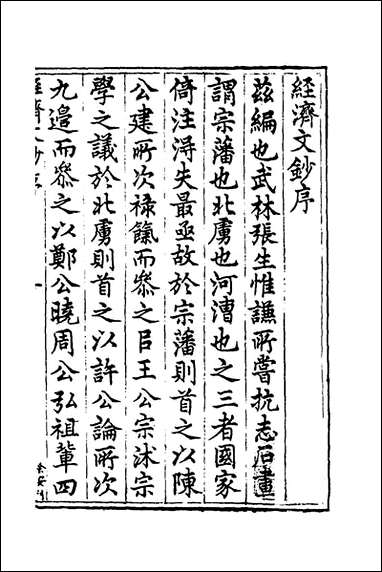 經濟文鈔序
茲編也武林張生惟謙所嘗抗志石畫
謂宗藩也北虜也河漕也之三者國家
倚注淂失最亟故於宗藩則首之以陳
公建所次祿餼而叅之㠯王公宗沐宗
學之議於北虜則首之以許公論所次
九邉而叅之以鄭公曉周公弘祖軰四
經濟文鈔序 一